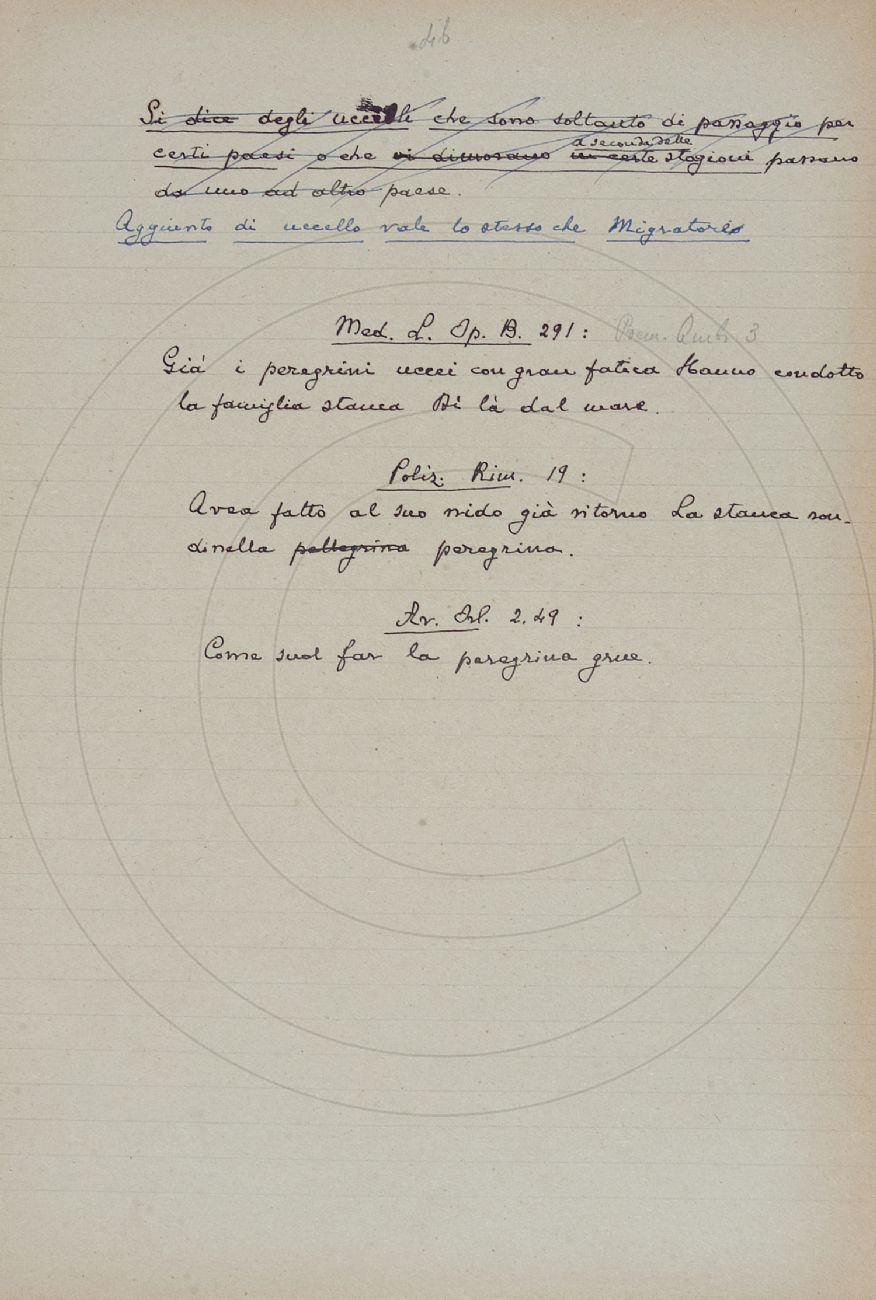 4b
Si dice degli uccelli che sono soltanto di passaggio per
a seconda delle
certi paesi o che vi dimorano in certe stagioni passano
da uno ad altro paese.
Aggiunto di uccello vale lo stesso che Migratorio
Med. L. Op. B. 291: Poem. Amb. 3
Già i peregrini uccei con gran fatica Hanno condotto
la famiglia stanca Di là dal mare.
Poliz. Rim. 19:
Avea fatto al suo nido già ritorno La stanca ron-
dinella pellegrina peregrina.
Ar. Orl. 2.49:
Come suol far la peregrina grue.